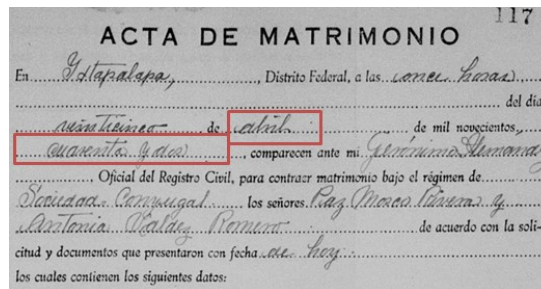 117
ACTA DE MATRIMONIO
En Ixtapalapa, , Distrito Federal, a las once horas
del día
veinticinco de abril de mil novecientos
cuarenta y dos , comparecen ante mi Gerónimo Alemand
, Oficial del Registro Civil, para contraer matrimonio bajo el régimen de
Sociedad Conyugal los señores Paz Moses Rivera y
Antonia Valdez Romero de acuerdo con la soli-
citud y documentos que presentaron con fecha de hoy
los cuales contienen los siguientes datos: